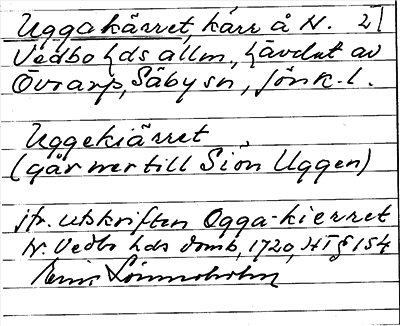 Uggakärret, kärr å N. 21
Vedbo hds allm., hävdat av
Övrarp, Säby sn, Jönk. l.
Uggekiärret
(går ner till Siön Uggen)
jfr. utskriften Ogga-kierret
N. Vedbo hds domb, 1720, HT § 154